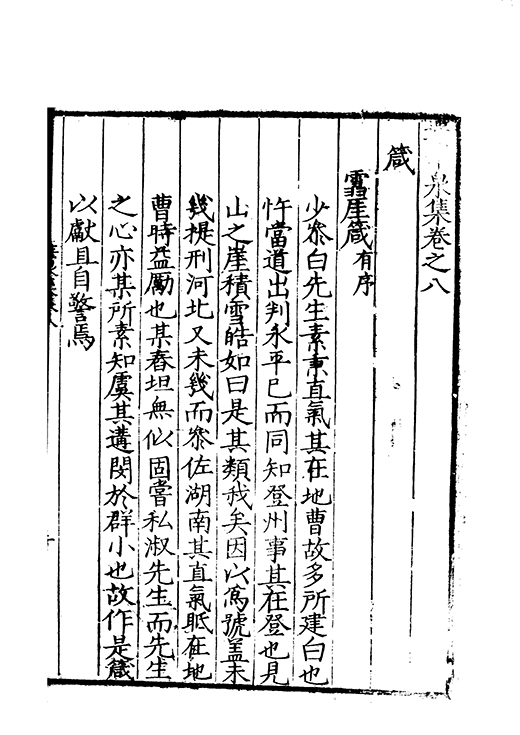 泉集卷之八
箴
雪崖箴有序
少叅白先生素秉直氣其在地曹故多所建白也
忤當道出判永平已而同知登州事其在登也見
山之崖積雪皓如曰是其類我矣因以爲號盖未
幾提刑河北又未幾而叅佐湖南其直氣眡在地
曹時益勵也某春坦無似固嘗私淑先生而先生
之心亦某所素知虞其遘閔於群小也故作是箴
以獻且自警焉